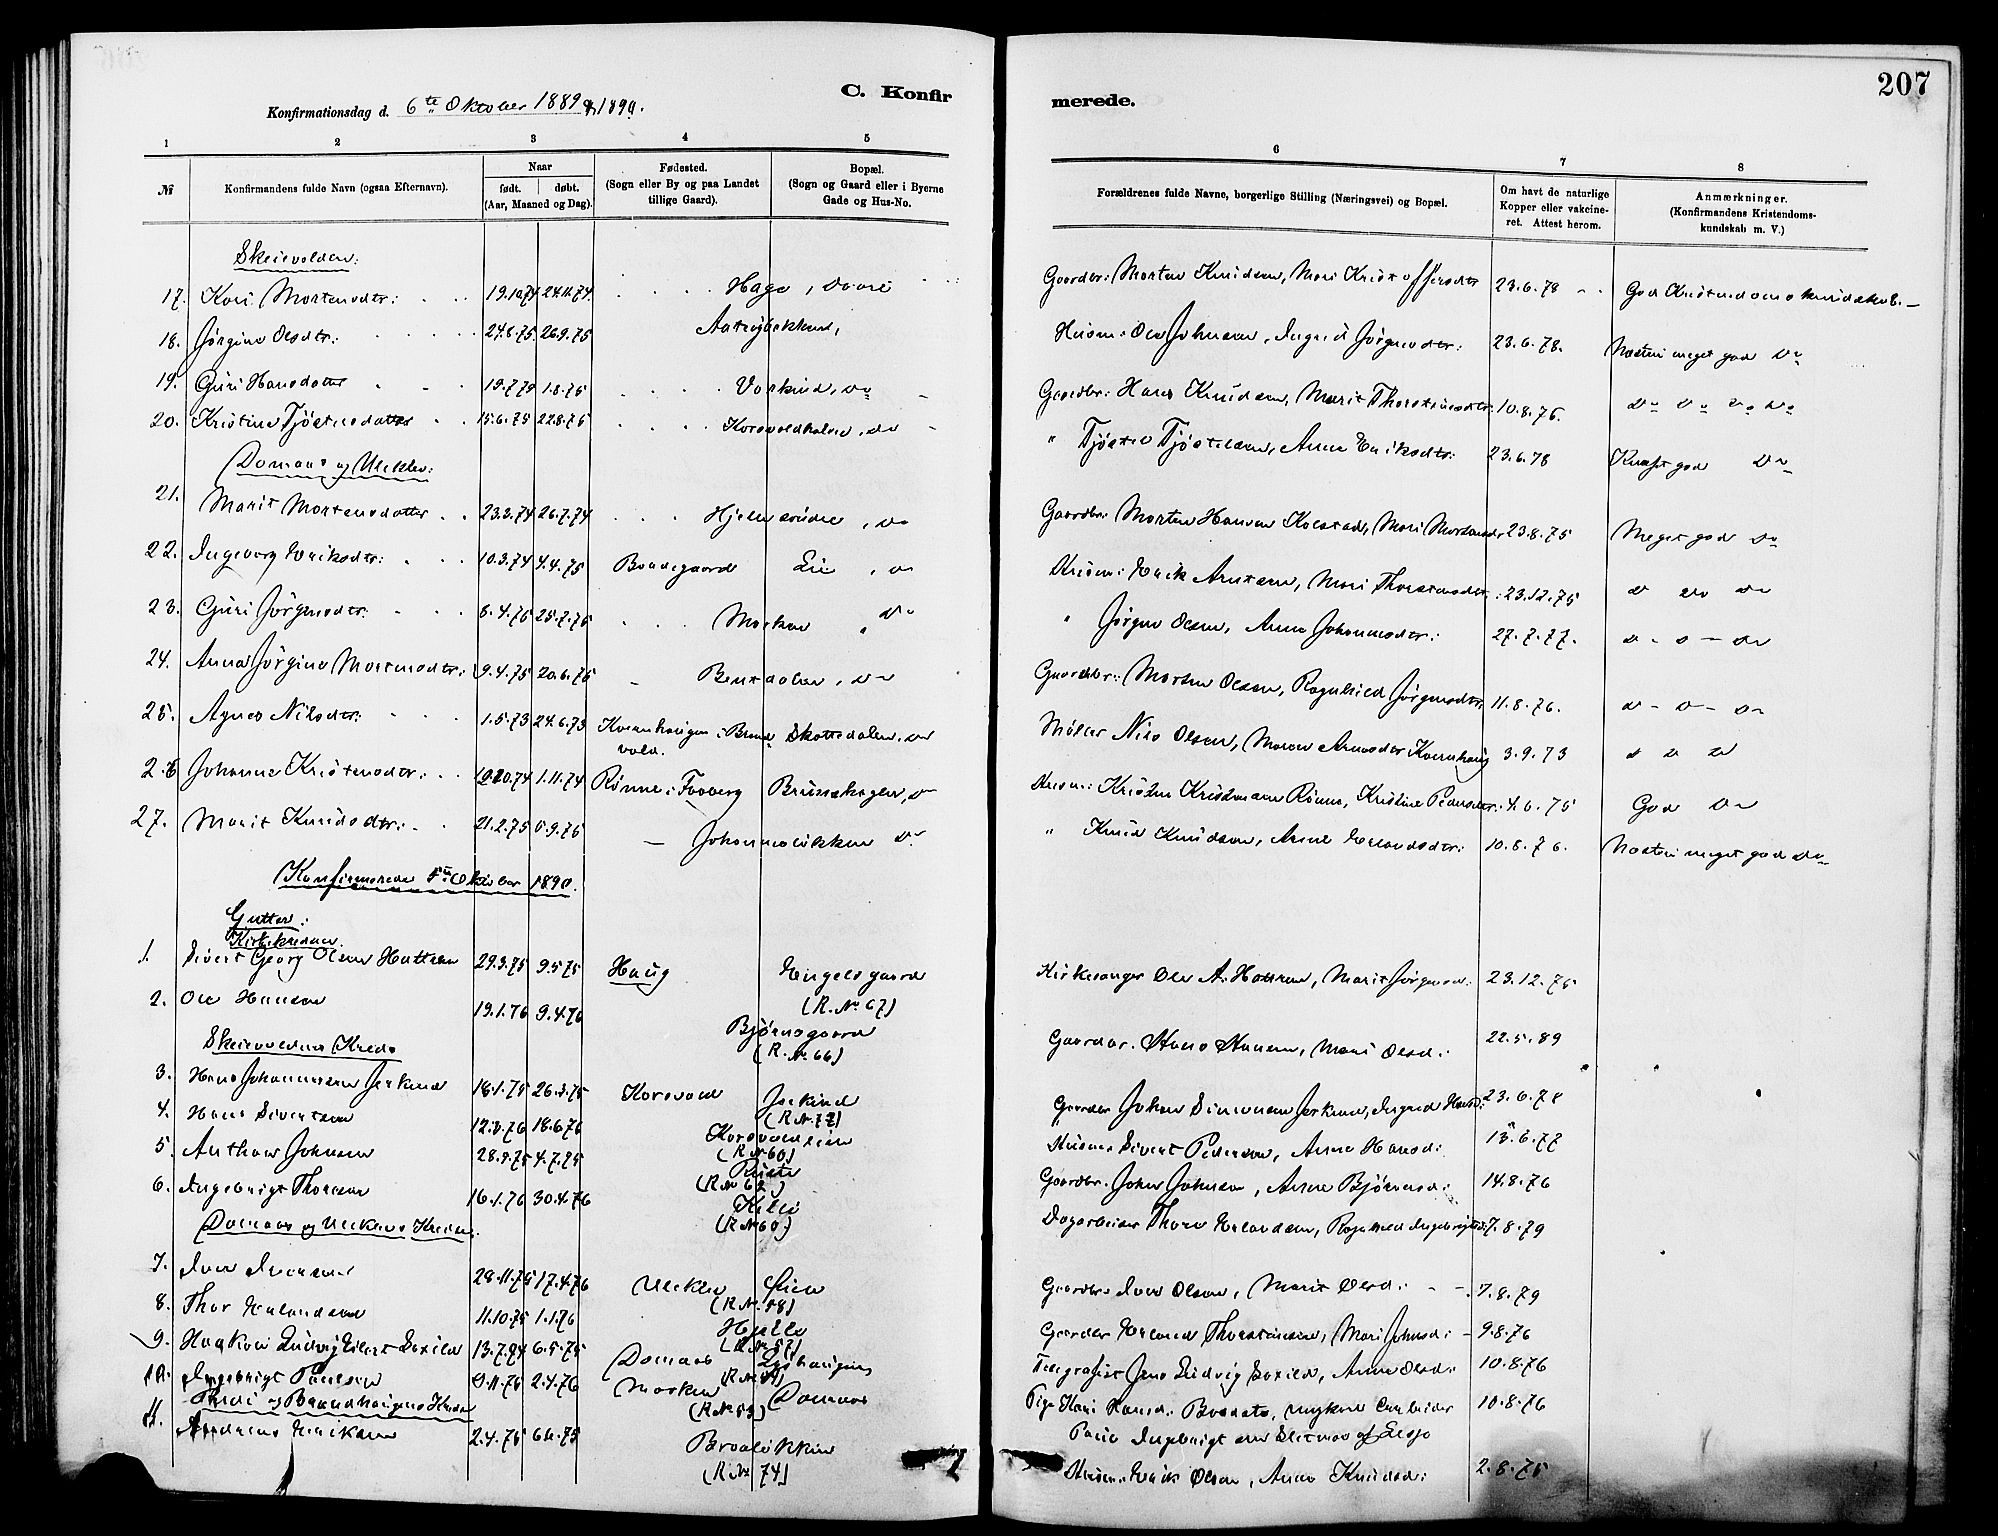 207
C. Konfir
merede.
Konfirmationsdag d. 6te Oktober 1889 & 1890.
1 2 3 4 5 6 7 8
№ Konfirmandens fulde Navn (ogsaa Efternavn).
Naar født. døbt. (Aar, Maaned og Dag).
Fødested. (Sogn eller By og paa Landet tillige Gaard).
Bopæl. (Sogn og Gaard eller i Byerne Gade og Hus-No.
Forældrenes fulde Navne, borgerlige Stilling (Næringsvei) og Bopæl.
Om havt de naturlige Kopper eller vakcineret. Attest herom.
Anmærkninger. (Konfirmandens Kristendomskundskab m. V.)
Skeievolden:
17. Kari Mortensdtr: 19.10.74 24.11.74. Hage, Dovre Gaardbr: Morten Knudsen, Mari Kristoffersdtr 23.6.78 God Kristendomskundskab.
18. Jørgine Olsdtr: 24.6.75 26.9.75 Husm: Ole Johnsen, Ingrid Jørgensdtr: 23.6.78. Næsten meget god Do
19. Guri Hansdatter 1.8.75 Do Gaardbr: Hans Knudsen, Marit Thorstensdtr: 10.8.76. Do Do Do Do
20. Kristine Tjøstensdatter 15.6.75 22.8.75 Do " Tjøstel Tjøstelsen, Anne Eriksdtr: 23.6.78 Knapt god Do
Domaas og Uleklev:
21. Marit Mortensdatter 23.3.74 26.7.74 Do Gaardbr: Morten Hansen Kolstad, Mari Mortensdr 23.8.75 Meget god Do
22. Ingeborg Eriksdtr: 10.3.74 4.4.75 Bondegaard Lie, Do Husm: Erik Arntsen, Mari Thorstensdtr: 23.12.75 Do Do Do
23. Guri Jørgensdtr. 8.4.75 25.7.75 Morken, Do " Jørgen Olsen, Anne Johannesdtr: 27.7.77. Do Do Do
24. Anna Jørgine Mortensdtr: 9.4.75 20.6.75 Bentdalen, Do Gaardbr: Morten Olsen, Ragnhild Jørgensdtr, 11.8.76. Do Do Do
25. Agnes Nilsdtr: 1.5.73 24.6.73 Kvernhaugen i Brandvold. Skottdalen, Do Møller Nils Olsen, Maren Arnesdtr Kvernhaug 3.9.73 Do Do Do
26 Johanne Kristensdtr: 1.11.74 Rønne i Faaberg Brunshagen, Do Husm: Kristen Kristensen Rønne, Kristine Pedersdtr: 4.6.75 God Do
27. Marit Knudsdtr: 21.2.75 5.9.75 Johannesløkken Do " Knud Knudsen, Anne Erlandsdtr: 10.8.76. Næsten meget god Do
Konfirmerede 5te Oktober 1890.
Gutter:
Kirkekredsen.
1. Sivert Georg Olsen Hattrem 29.3.75 9.5.75 Haug Engelsgaard (R. No 67) Kirkesanger Ole A. Hattrem, Marit Jørgensd: 23.12.75
2. Ole Hansen 19.1.76 9.4.76 Bjørnsgaard (R. No 66) Gaardbr. Hans Hansen, Mari Olsd: 22.5.89
Skeievoldens Kreds
3. Hans Johannessen Jerkind 18.1.75 26.3.75 Korsvold Jerkind (R. N. 72) Gaardbr Johan Simonsen Jerkind, Ingrid Hansd: 23.6.78
4. Hans Sivertsen 12.3.76 18.6.76 Korsvoldlien (R. N. 60) Husm: Sivert Pedersen, Anne Hansd: 13.6.77
5. Anthon Johnsen 28.5.75 4.7.75 Ruste (R. No 62) Gaardbr. John Johnsen, Anne Bjørnsd: 14.8.76
6. Ingebrigt Thoresen 16.1.76 30.4.76 (R. N. 60) Dagarbeider Thore Erlandsen, Ragnhild Ingebrigtsd: 7.8.79
Domaas og Uleklevs Kredse.
7. Iver Iversen 28.11.75 17.4.76 Uleklev Lien (R. N. 58) Gaardbr: Iver Olsen, Marit Olsd: 7.8.79
8. Thor Erlandsen 11.10.75 1.1.76 Hjelle (R. N. 57) Gaardbr Erland Thorstensen, Mari Johnsd: 9.8.76
9. Haakon Ludvig Eilert Soxild 13.7.74 6.5.75 Domaas Telegrafist Jens Ludvig Soxild, Anne Olsd: 10.8.76
10. Ingebrigt Paulsen 9.11.75 2.4.76 Morken (R. No 53) Domaas Pige Kari Hansd: 10.8.76
Paul Ingebrigtsen af Lesja
11. Andreas Eriksen 2.4.75 Braaløkken (R. No 74) Husm: Erik Olsen, Anne Knudsd: 2.8.75